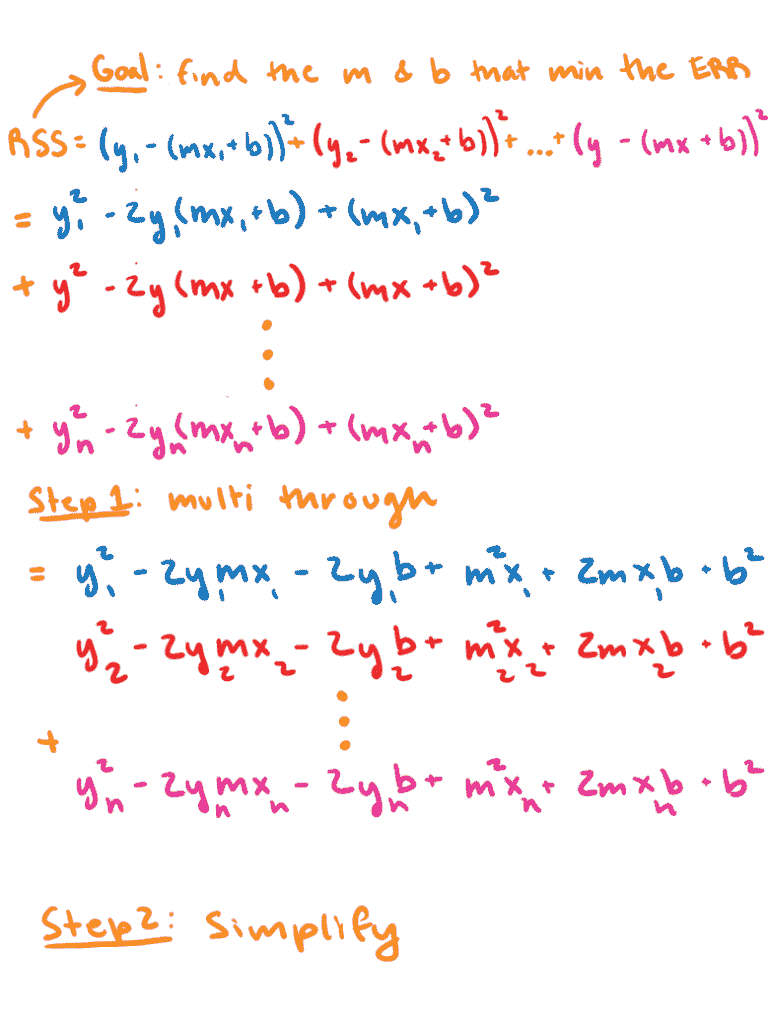 Goal: find the m & b that min the ERR
RSS = (y₁ - (mx₁+b))² + (y₂ - (mx₂+b))² + ... + (y - (mx+b))²
= y₁² - 2y₁(mx₁+b) + (mx₁+b)²
+ y² - 2y(mx+b) + (mx+b)²
⋮
+ yₙ² - 2yₙ(mxₙ+b) + (mxₙ+b)²
Step 1: multi through
= y₁² - 2y₁mx₁ - 2y₁b + m²x₁ + 2mx₁b + b²
y₂² - 2y₂mx₂ - 2y₂b + m²₂x₂ + 2mx₂b + b²
⋮
+
yₙ² - 2yₙmxₙ - 2yₙb + m²xₙ + 2mxₙb + b²
Step 2: Simplify